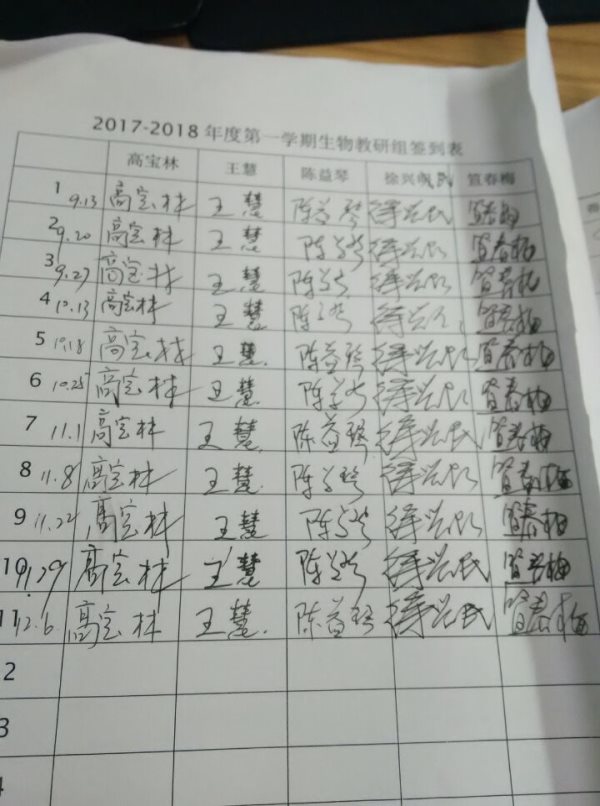 2017-2018 年度第一学期生物教研组签到表
高宝林 王慧 陈益琴 徐兴民 笪春梅
1 9.13 高宝林 王慧 陈益琴 徐兴民 笪春梅
2 9.20 高宝林 王慧 陈益琴 徐兴民 笪春梅
3 9.27 高宝林 王慧 陈益琴 徐兴民 笪春梅
4 10.13 高宝林 王慧 陈益琴 徐兴民 笪春梅
5 10.18 高宝林 王慧 陈益琴 徐兴民 笪春梅
6 10.25 高宝林 王慧 陈益琴 徐兴民 笪春梅
7 11.1 高宝林 王慧 陈益琴 徐兴民 笪春梅
8 11.8 高宝林 王慧 陈益琴 徐兴民 笪春梅
9 11.22 高宝林 王慧 陈益琴 徐兴民 笪春梅
10 11.29 高宝林 王慧 陈益琴 徐兴民 笪春梅
11 12.6 高宝林 王慧 陈益琴 徐兴民 笪春梅
2
3